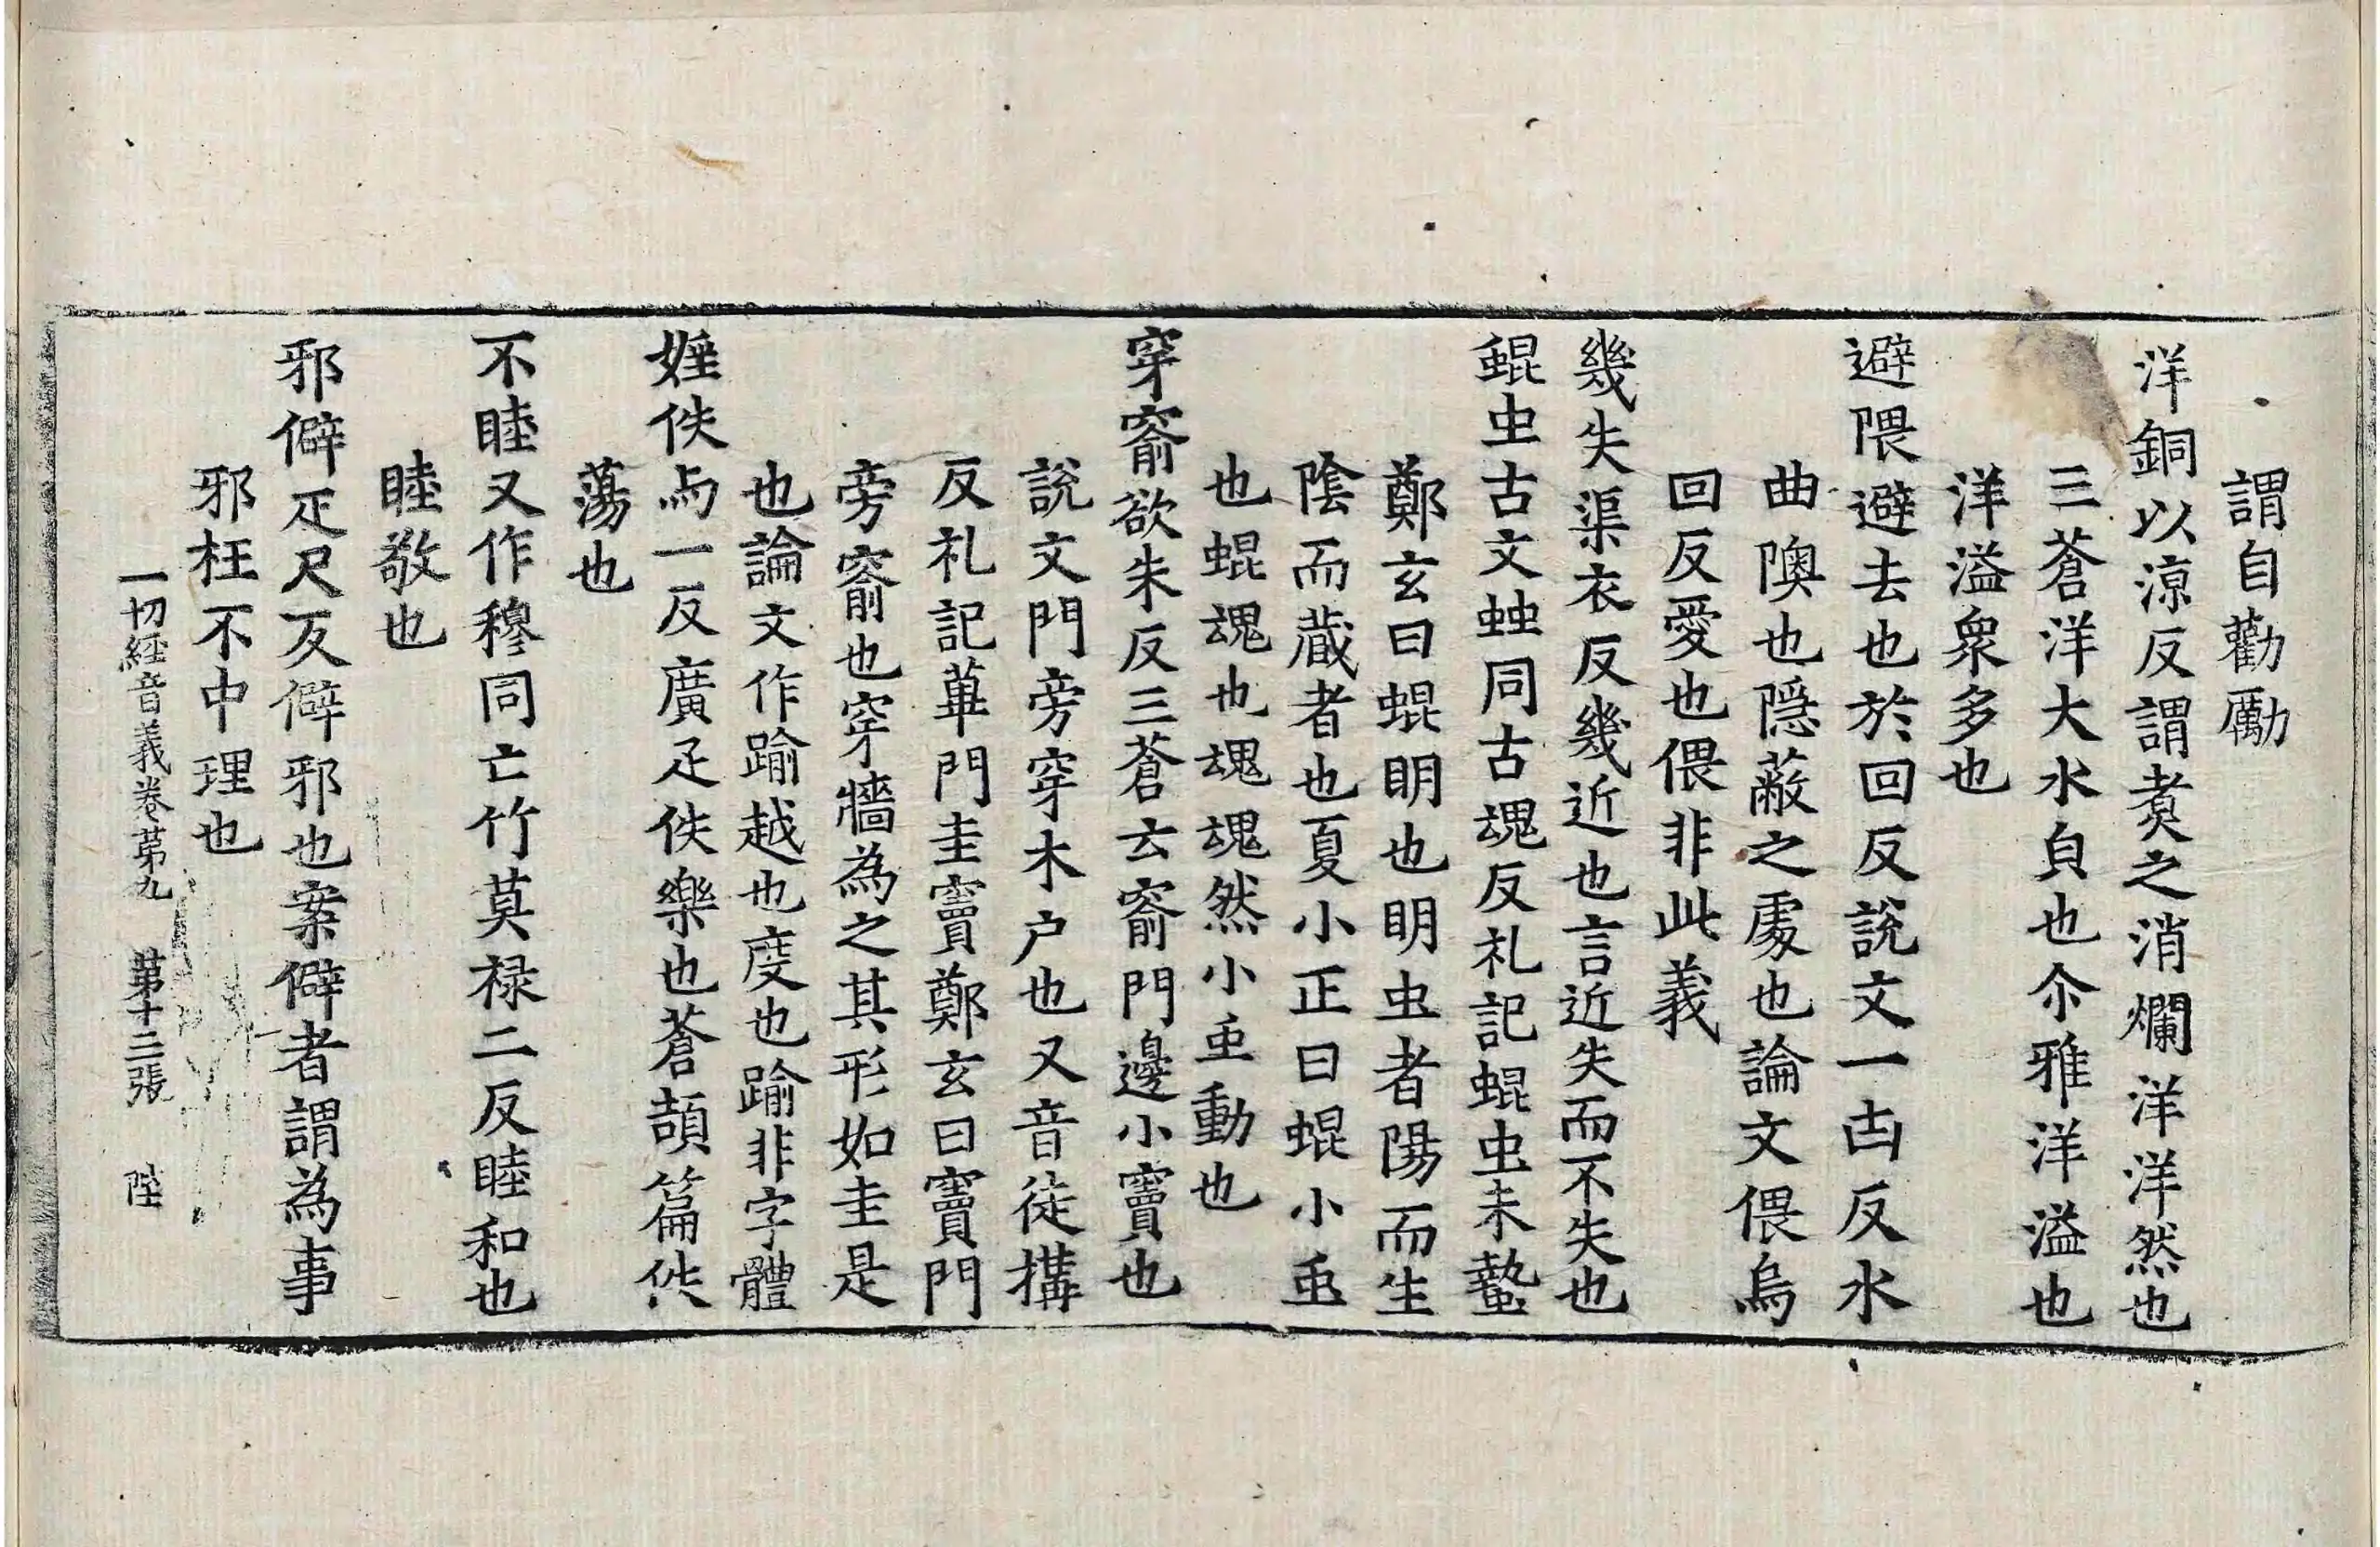 謂自勸勵
洋銅以涼反謂煑之消爛洋洋然也
三蒼洋大水皃也尒雅洋溢也
洋溢衆多也
避隈避去也於回反說文一凷反水
曲隩也隱蔽之處也論文偎烏
回反愛也偎非此義
幾失渠衣反幾近也言近失而不失也
蜫虫古文䖵同古魂反礼記蜫虫未蟄
鄭玄曰蜫明也明虫者陽而生
陰而藏者也夏小正曰蜫小䖝
也蜫魂也魂魂然小䖝動也
穿窬欲朱反三蒼云窬門邊小竇也
說文門旁穿木户也又音徒搆
反礼記蓽門圭竇鄭玄曰竇門
旁窬也穿牆為之其形如圭是
也論文作踰越也度也踰非字體
婬佚与一反廣疋佚樂也蒼頡篇佚
蕩也
不睦又作穆同亡竹莫禄二反睦和也
睦敬也
邪僻疋尺反僻邪也案僻者謂為事
邪枉不中理也
一切經音義卷苐九 第十二張 陞